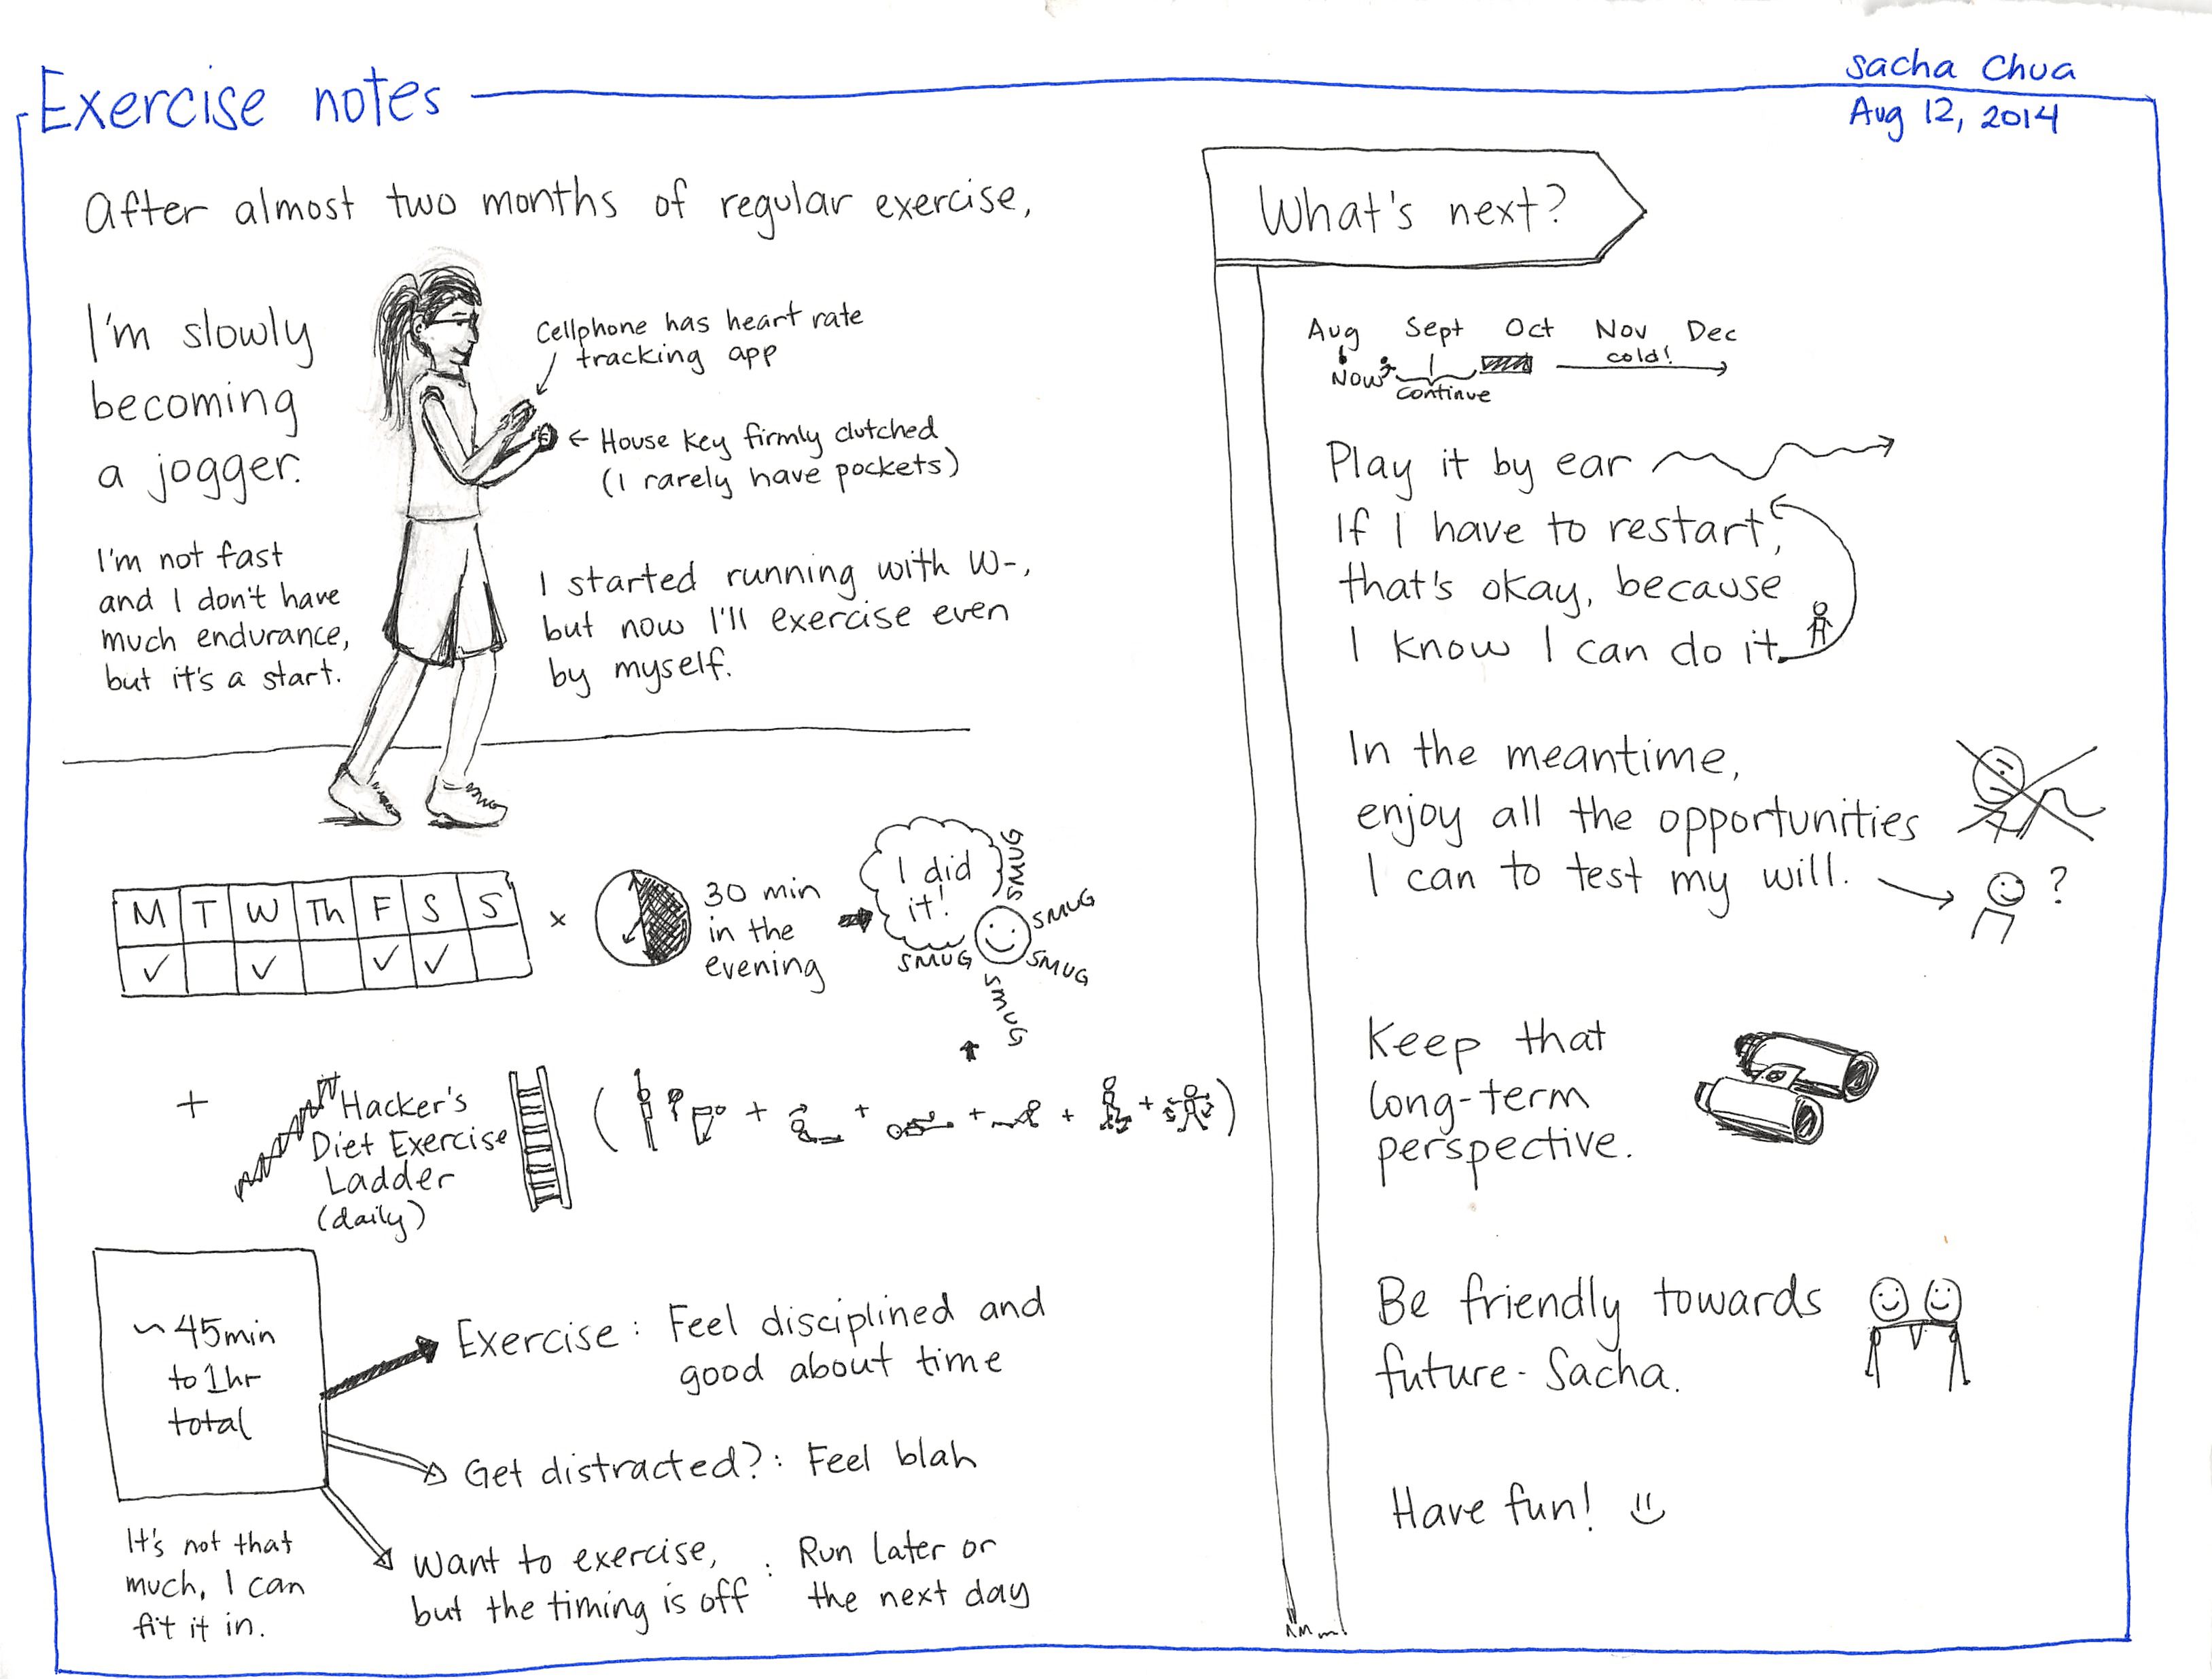 Exercise notes
Sacha Chua
Aug 12, 2014
After almost two months of regular exercise,
I'm slowly
becoming
a jogger.
I'm not fast
and I don't have
much endurance,
but it's a start.
Cellphone has heart rate
tracking app
House key firmly clutched
(I rarely have pockets)
I started running with W-,
but now I'll exercise even
by myself.
M T W Th F S S
✓ ✓ ✓ ✓
x
30 min
in the
evening
I did
it!
SMUG
SMUG
SMUG
SMUG
SMUG
+
Hacker's
Diet Exercise
Ladder
(daily)
( + + + + + )
~45min
to 1hr
total
It's not that
much, I can
fit it in.
Exercise: Feel disciplined and
good about time
Get distracted?: Feel blah
Want to exercise,
but the timing is off
: Run later or
the next day
What's next?
Aug Sept Oct Nov Dec
cold!
Now
continue
Play it by ear
If I have to restart,
that's okay, because
I know I can do it.
In the meantime,
enjoy all the opportunities
I can to test my will.
?
Keep that
long-term
perspective.
Be friendly towards
future-Sacha.
Have fun!